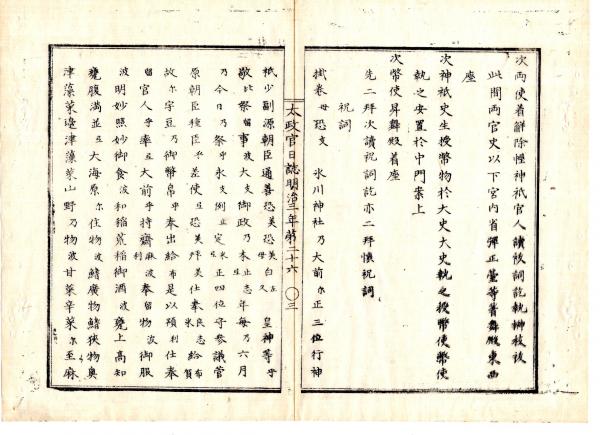 次両使着解除幄神祇官人讀祓詞訖執麻移祓
此間両官史以下宮内省彈正臺等着舞殿東西
座
次神祇史生授幣物於大史大史執之授幣使幣使
執之安置於中門案上
次幣使昇舞殿着座
先二拜次讀祝詞訖亦二拜懐祝詞
祝詞
掛巻毋恐支氷川神社乃大前尓正三位行神
太政官日誌明治三年第二十六 〇三
祇少副源朝臣通善恐美恐美毋白左久皇神等乎
敬比祭留事波大支御政乃本止志年毎乃六月
乃今日乃祭乎永支例止定米正四位守参議菅
原朝臣種臣乎差使弖恐美毋美仕奉良志米給布
故尓宇豆乃御幣帛乎奉出給布是以預利仕奉
留官人乎率弖大前乎持齋麻波利奉留物波御服
波明妙照妙御食波和稲荒稲御酒波甕上高知
甕腹満並弖大海原尓住物波鰭廣物鰭狭物奥
津藻菜邊津藻菜山野乃物波甘菜辛菜尓至麻